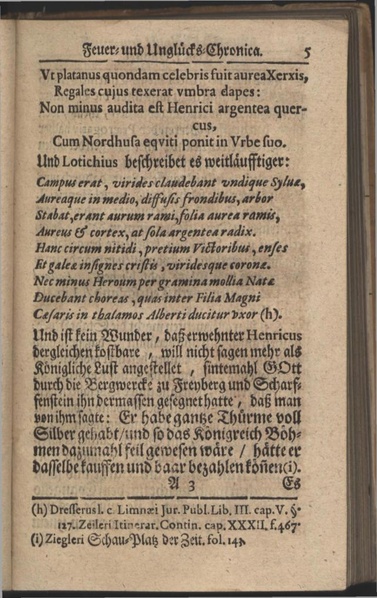 Feuer- und Unglücks-Chronica. 5
Vt platanus quondam celebris fuit aurea Xerxis,
Regales cujus texerat vmbra dapes:
Non minus audita est Henrici argentea quer-
cus,
Cum Nordhusa eqviti ponit in Vrbe suo.
Und Lotichius beschreibet es weitläufftiger:
Campus erat, virides claudebant vndique Syluæ,
Aureaque in medio, diffusis frondibus, arbor
Stabat, erant aurum rami, folia aurea ramis,
Aureus & cortex, at sola argentea radix.
Hanc circum nitidi, pretium Victoribus, enses
Et galeæ insignes cristis, viridesque coronæ.
Nec minus Heroum per gramina mollia Natæ
Ducebant choreas, quas inter Filia Magni
Cæsaris in thalamos Alberti ducitur vxor (h).
Und ist kein Wunder, daß erwehnter Henricus
dergleichen kostbare, will nicht sagen mehr als
Königliche Lust angestellet, sintemahl GOtt
durch die Bergwercke zu Freyberg und Scharf-
fenstein ihn dermassen gesegnet hatte, daß man
von ihm sagte: Er habe gantze Thürme voll
Silber gehabt/und so das Königreich Böh-
men dazumahl feil gewesen wäre / hätte er
dasselbe kauffen und baar bezahlen köñen(i).
A 3 Es
(h) Dresserus l. c. Limnæi Jur. Publ. Lib. III. cap. V. §.
127. Zeileri Itinerar. Contin. cap. XXXII. f. 467.
(i) Ziegleri Schau-Platz der Zeit. fol. 143.